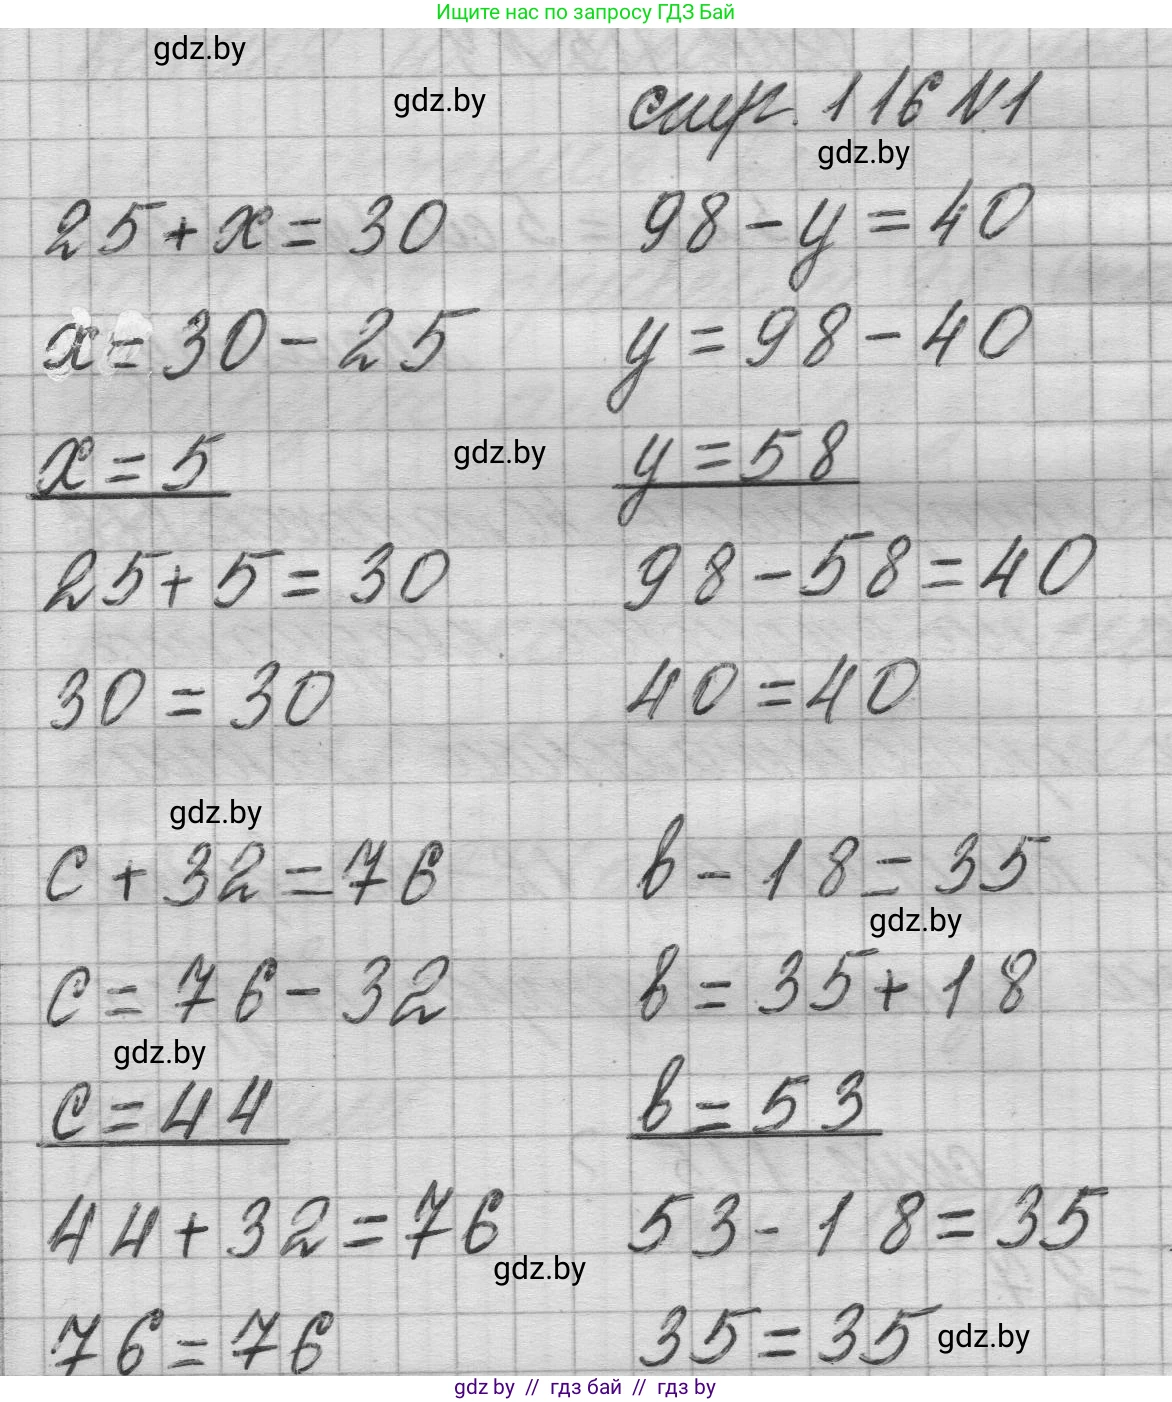 Ищите нас по запросу ГДЗ Бай
gdz.by
gdz.by
стр. 116 №1
gdz.by
25 + x = 30
x = 30 - 25
x = 5
25 + 5 = 30
30 = 30
98 - y = 40
y = 98 - 40
gdz.by
y = 58
98 - 58 = 40
40 = 40
gdz.by
c + 32 = 76
c = 76 - 32
gdz.by
c = 44
44 + 32 = 76
gdz.by
76 = 76
b - 18 = 35
gdz.by
b = 35 + 18
b = 53
53 - 18 = 35
35 = 35
gdz.by
gdz by // гдз бай // гдз by